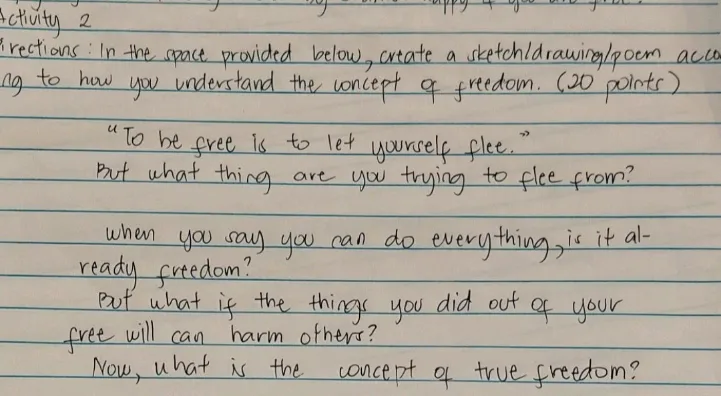 Activity 2
irections: In the space provided below, create a sketch/drawing/poem acco
ng to how you understand the concept of freedom. (20 points)
"To be free is to let yourself flee."
But what thing are you trying to flee from?
When you say you can do everything, is it al-
ready freedom?
But what if the things you did out of your
free will can harm others?
Now, what is the concept of true freedom?